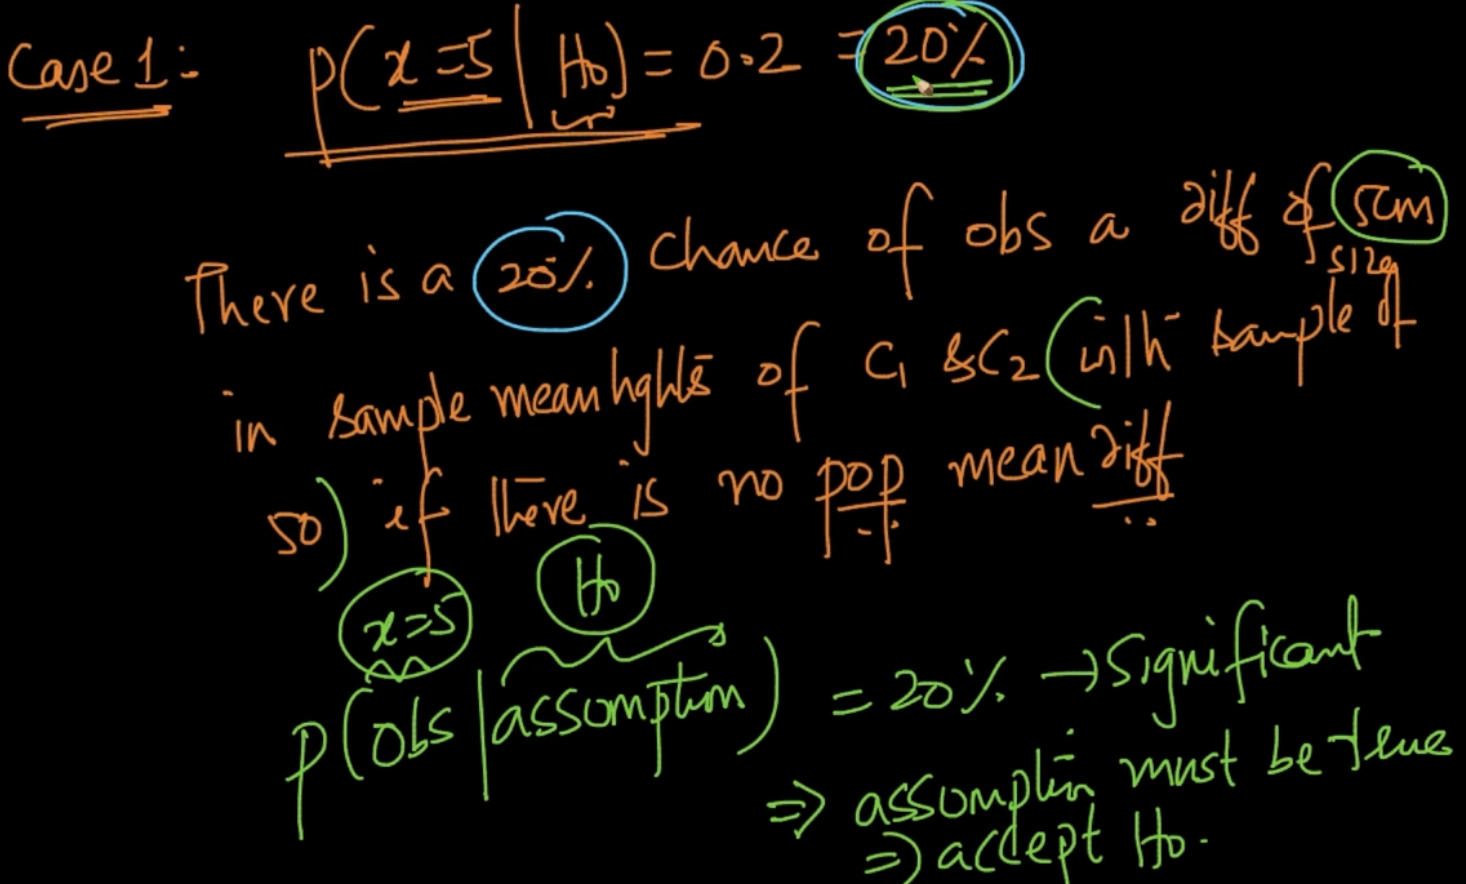 Case 1:- P(x=5 | H0) = 0.2 = 20%
There is a 20% chance of obs a diff of 5cm
in sample mean hghts of C1 & C2 (with sample of size
50) if there is no pop mean diff
x=5 H0
P(obs | assumption) = 20% → Significant
⇒ assumption must be true
⇒ accept H0.